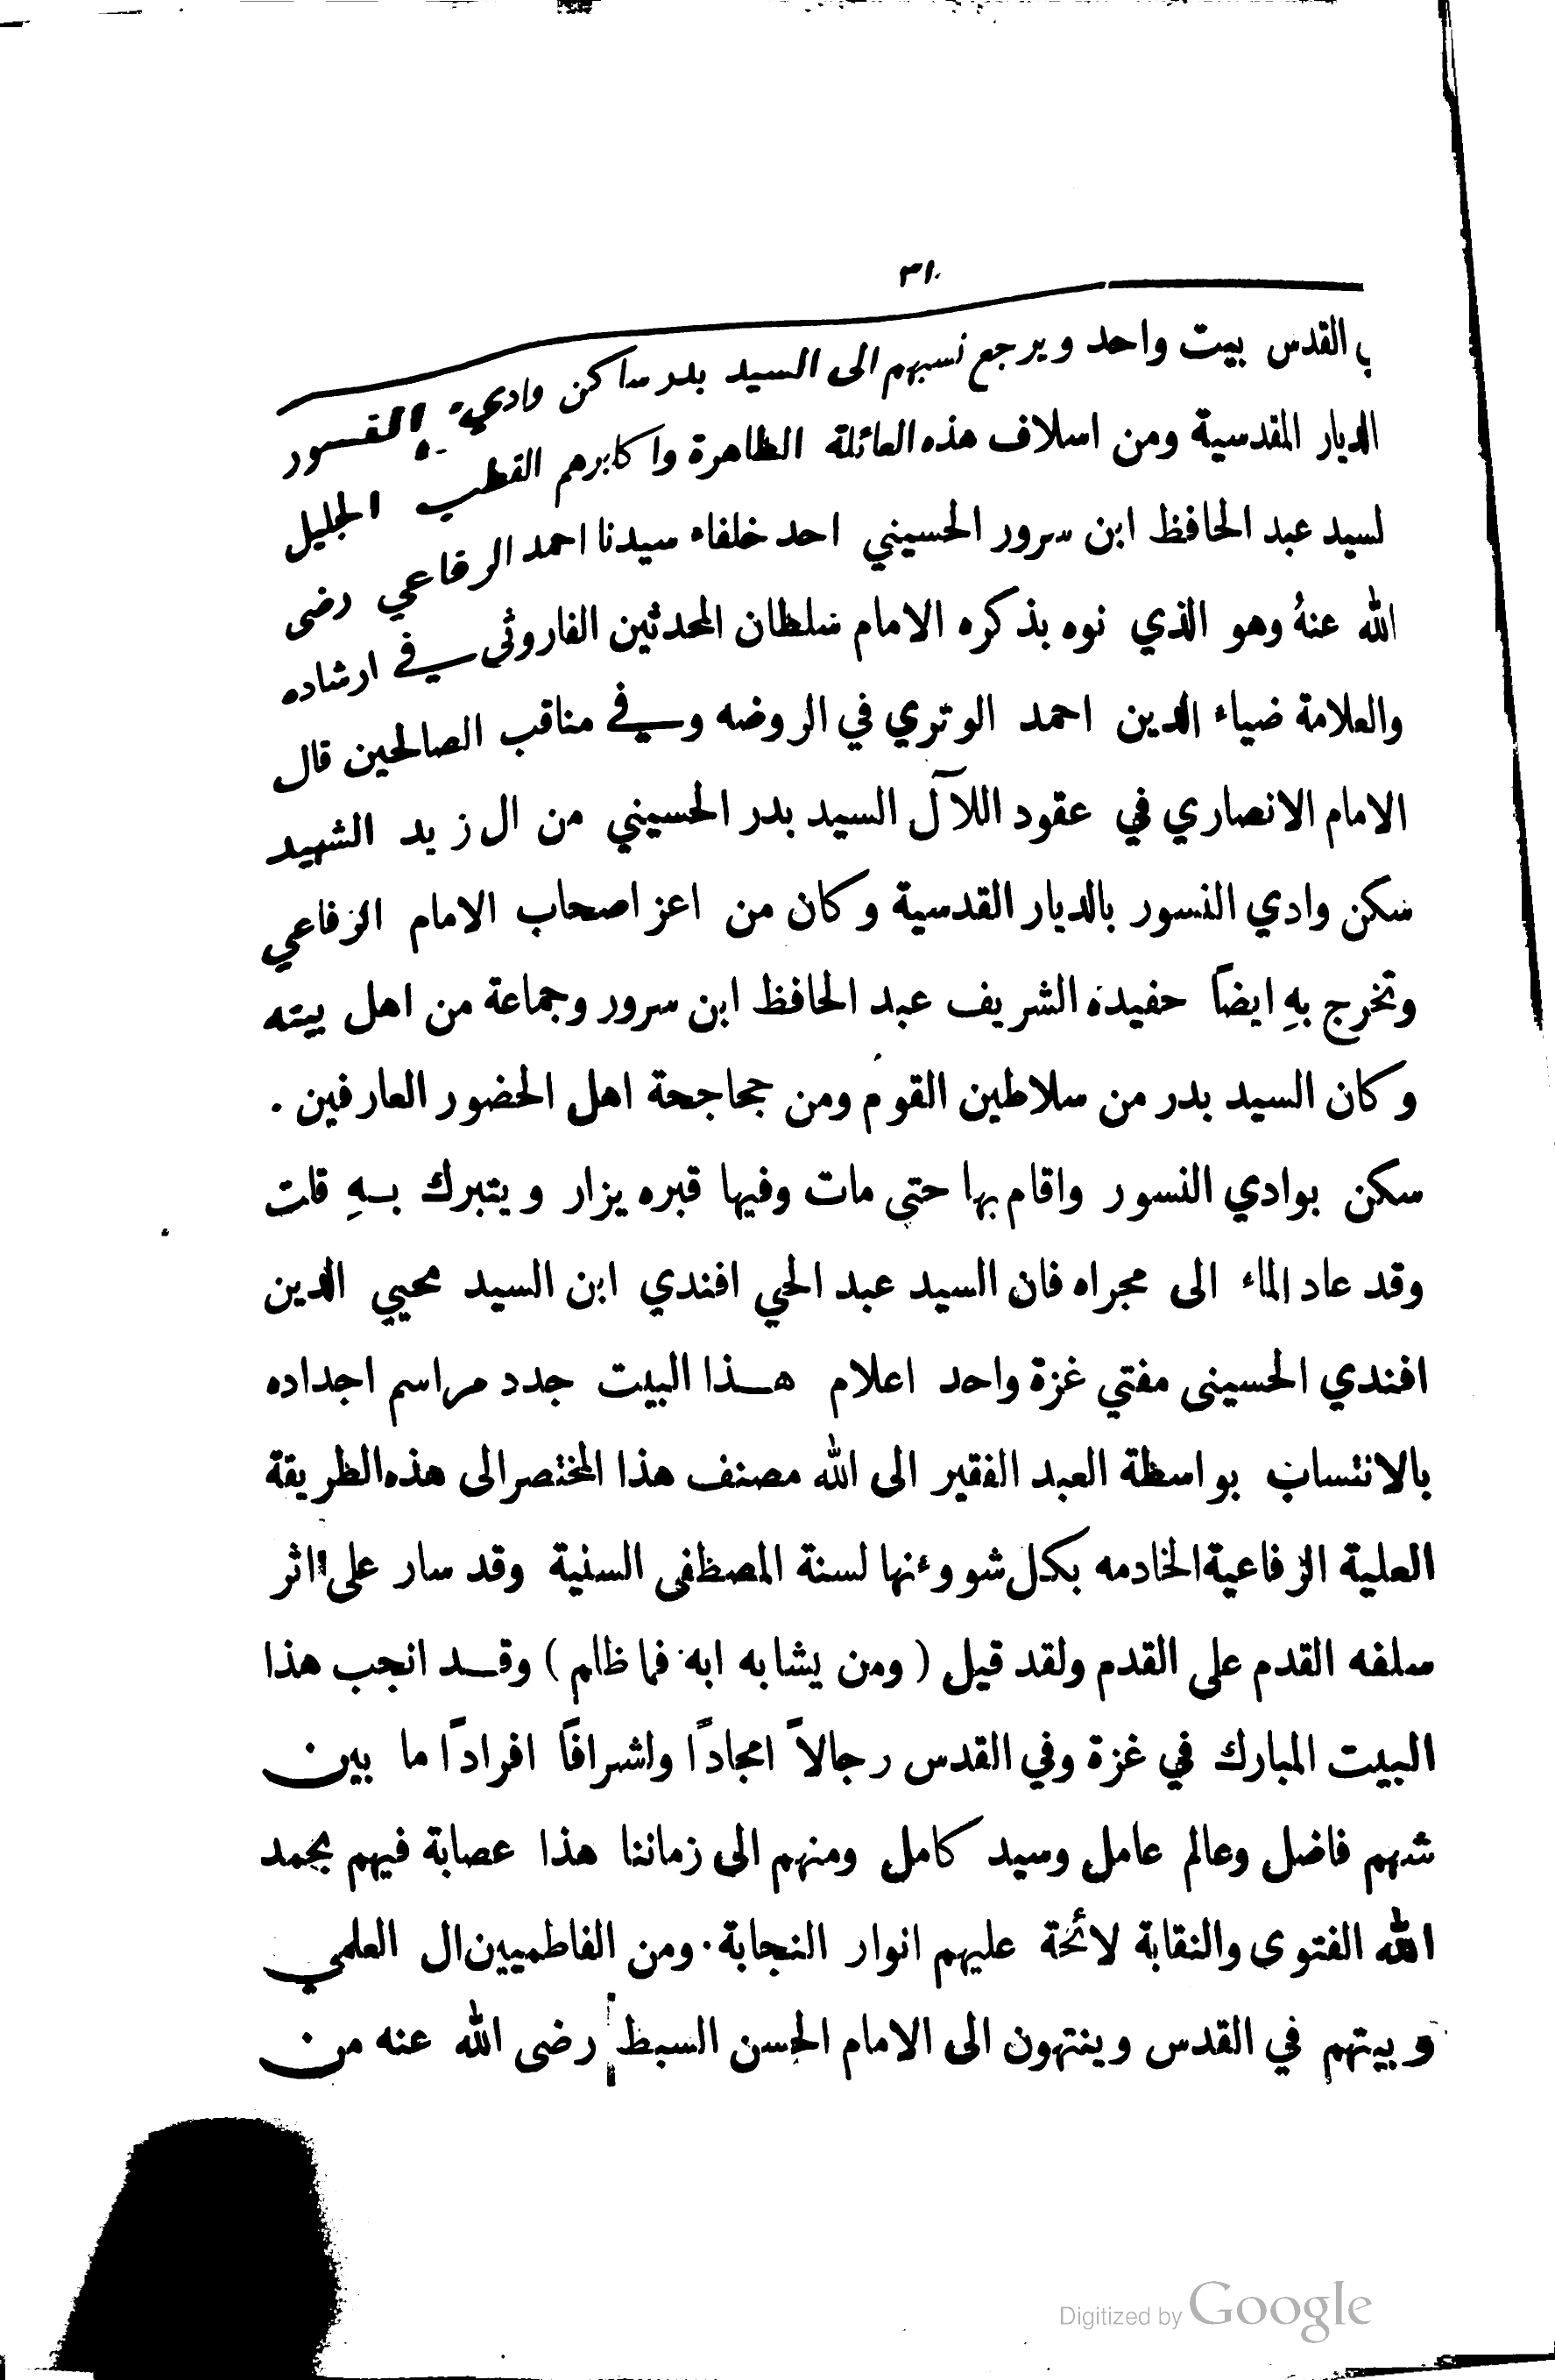 ٣١
بالقدس بيت واحد ويرجع نسبهم الى السيد بدر ساكن وادي النسور
الديار المقدسية ومن اسلاف هذه العائلة الطاهرة واكابرهم القطب الجليل
لسيد عبد الحافظ ابن سرور الحسيني احد خلفاء سيدنا احمد الرفاعي رضى
الله عنهُ وهو الذي نوه بذكره الامام سلطان المحدثين الفاروثى في ارشاده
والعلامة ضياء الدين احمد الوتري في الروضه وفي مناقب الصالحين قال
الامام الانصاري في عقود اللآل السيد بدر الحسيني من ال زيد الشهيد
سكن وادي النسور بالديار القدسية وكان من اعز اصحاب الامام الرفاعي
وتخرج بهِ ايضاً حفيده الشريف عبد الحافظ ابن سرور وجماعة من اهل بيته
وكان السيد بدر من سلاطين القوم ومن جحاجحة اهل الحضور العارفين .
سكن بوادي النسور واقام بها حتى مات وفيها قبره يزار ويتبرك بهِ قلت
وقد عاد الماء الى مجراه فان السيد عبد الحي افندي ابن السيد محيي الدين
افندي الحسينى مفتي غزة واحد اعلام هذا البيت جدد مراسم اجداده
بالانتساب بواسطة العبد الفقير الى الله مصنف هذا المختصر الى هذه الطريقة
العلية الرفاعية الخادمه بكل شووءنها لسنة المصطفى السنية وقد سار على اثر
سلفه القدم على القدم ولقد قيل ( ومن يشابه ابه فما ظلم ) وقد انجب هذا
البيت المبارك في غزة وفي القدس رجالاً امجاداً واشرافاً افراداً ما بين
شهم فاضل وعالم عامل وسيد كامل ومنهم الى زماننا هذا عصابة فيهم بحمد
الله الفتوى والنقابة لائحة عليهم انوار النجابة . ومن الفاطميين ال العلمي
وبيتهم في القدس وينتهون الى الامام الحسن السبط رضى الله عنه من
Digitized by Google